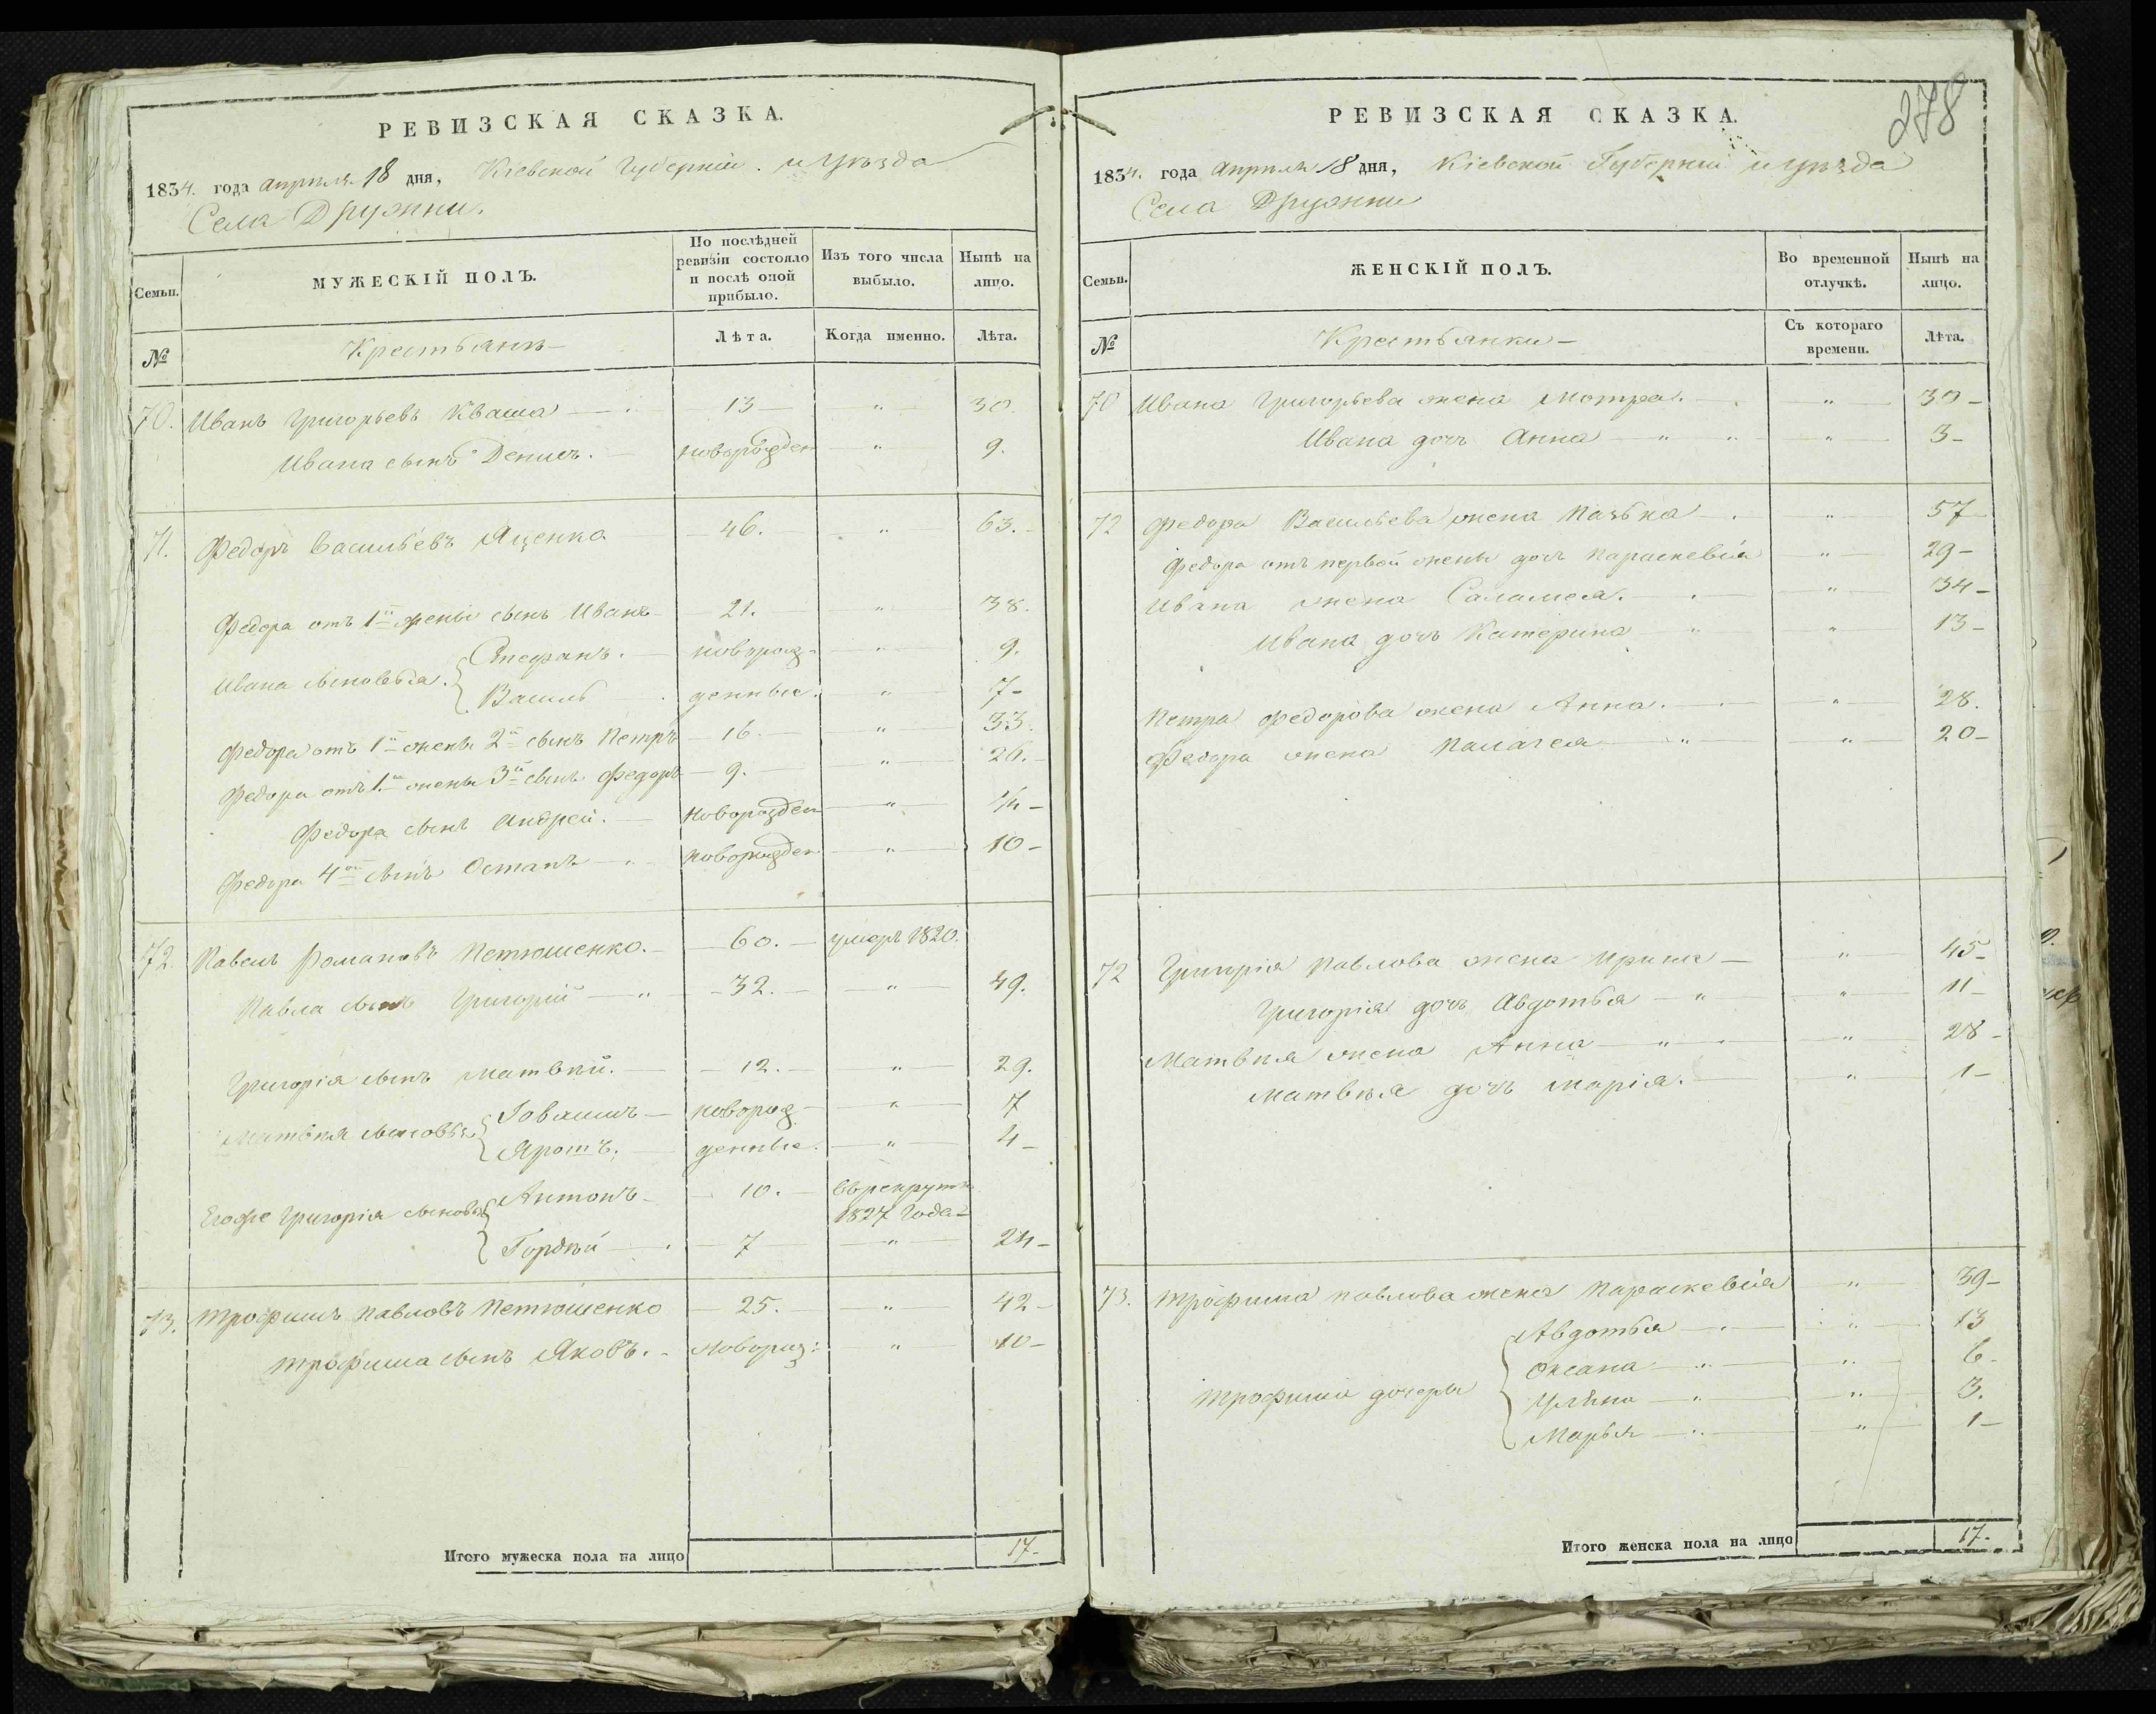 РЕВИЗСКАЯ СКАЗКА.
1834. года апреля 18 дня, Кіевской Губерніи. и уѣзда
Села Дружни.
Семьи.
МУЖЕСКІЙ ПОЛЪ.
По послѣдней ревизіи состояло и послѣ оной прибыло.
Изъ того числа выбыло.
Нынѣ на лицо.
№
Крестьянъ
Лѣта.
Когда именно.
Лѣта.
70. Иванъ Григорьевъ Кваша 13 " 30.
Ивана сынъ Денисъ. новорожден " 9.
71. Федоръ Васильевъ Яценко 46. " 63.
Федора отъ 1й жены сынъ Иванъ 21. " 38.
Ивана сыновья. Стефанъ. новорож- " 9.
Василь денные. " 7
Федора отъ 1й жены 2й сынъ Петръ 16. " 33.
Федора отъ 1й жены 3й сынъ Федоръ 9. " 26.
Федора сынъ Андрей. новорожден " 1/4
Федора 4ой сынъ Остапъ новорожден " 10
72. Павелъ Романовъ Петюшенко. 60. умеръ 1820.
Павла сынъ Григорій " 32. " 49.
Григорія сынъ Матвѣй. 12. " 29.
Матвѣя сыновья Іоакимъ новорож- " 7
Ярошъ. денные. " 4
Его же Григорія сыновья Антонъ 10. въ рекруты
1827 года
Гордѣй 7 " 24
73. Трофимъ Павловъ Петюшенко 25. " 42
Трофима сынъ Яковъ. новорож: " 10
Итого мужеска пола на лицо 17.
278
РЕВИЗСКАЯ СКАЗКА.
1834. года апреля 18 дня, Кіевской Губерніи и уѣзда
Села Дружни
Семьи.
ЖЕНСКІЙ ПОЛЪ.
Во временной отлучкѣ.
Нынѣ на лицо.
№
Крестьянки
Съ котораго времени.
Лѣта.
70 Ивана Григорьева жена Мотря. " 30
Ивана дочь Анна " " 3
72 Федора Васильева жена Пазька " 57
Федора отъ первой жены дочь Параскевія " 29
Ивана жена Саломея. " 34
Ивана дочь Катерина " " 13
Петра Федорова жена Анна. " 28.
Федора жена Палагея " " 20
72 Григорія Павлова жена Ирина " 45
Григорія дочь Авдотья " " 11
Матвѣя жена Анна " " 28
Матвѣя дочь Марія. " 1
73. Трофима Павлова жена Параскевія " 39
Авдотья " 13
Оксана " " 6
Трофима дочери Уляна " " 3.
Марья " " 1
Итого женска пола на лицо 17.